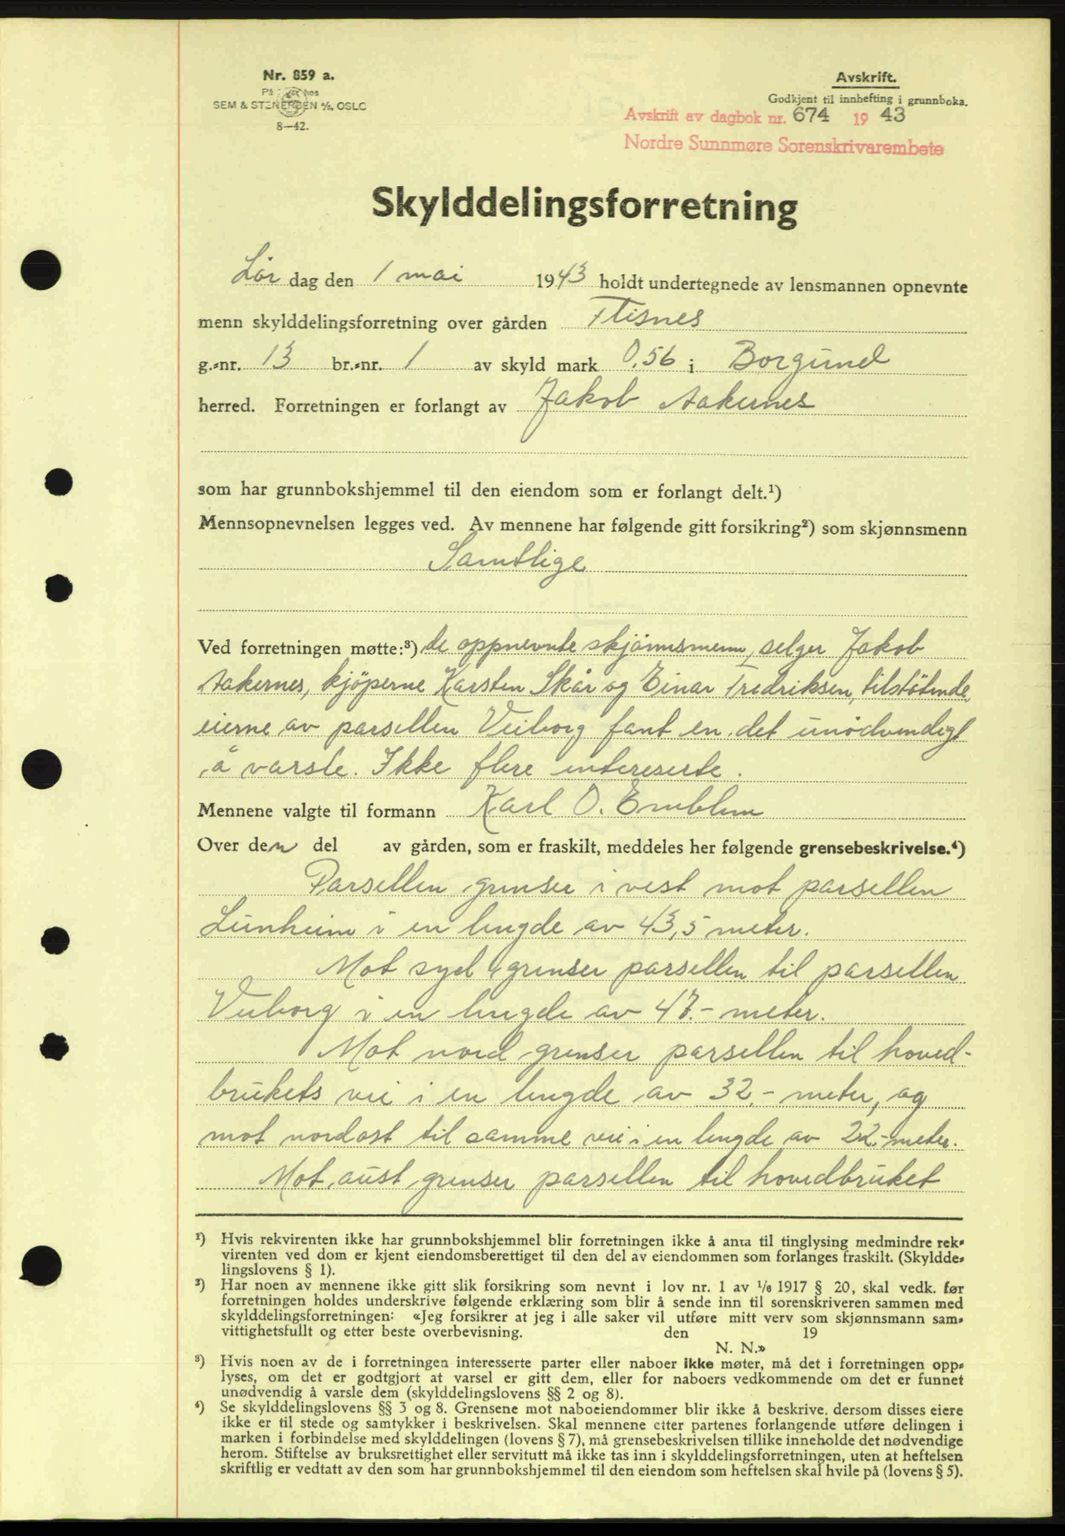 Nr. 859 a.
På lager hos
SEM & STENERSEN A/S, OSLO
8—42.
Avskrift.
Godkjent til innhefting i grunnboka.
Avskrift av dagbok nr. 674 1943
Nordre Sunnmøre Sorenskrivarembete
Skylddelingsforretning
Lør dag den 1 mai 1943 holdt undertegnede av lensmannen opnevnte
menn skylddelingsforretning over gården Flisnes
g.-nr. 13 br.-nr. 1 av skyld mark 0,56 i Borgund
herred. Forretningen er forlangt av Jakob Aakernes
som har grunnbokshjemmel til den eiendom som er forlangt delt.¹)
Mennsopnevnelsen legges ved. Av mennene har følgende gitt forsikring²) som skjønnsmenn
Samtlige
Ved forretningen møtte:³) de oppnevnte skjønnsmenn, selger Jakob
Aakernes, kjøperne Karsten Skår og Einar Fredriksen, tilstøtende
eierne av parsellen Veiborg fant en det unødvendigt
å varsle. Ikke flere intereserte.
Mennene valgte til formann Karl O. Emblem
Over den del av gården, som er fraskilt, meddeles her følgende grensebeskrivelse.⁴)
Parsellen grenser i vest mot parsellen
Lunheim i en lengde av 43,5 meter.
Mot syd grenser parsellen til parsellen
Veiborg i en lengde av 47.- meter.
Mot nord grenser parsellen til hoved-
brukets vei i en lengde av 32,- meter, og
mot nordost til samme vei i en lengde av 22,- meter.
Mot aust grenser parsellen til hovedbruket
¹) Hvis rekvirenten ikke har grunnbokshjemmel blir forretningen ikke å anta til tinglysing medmindre rek-
virenten ved dom er kjent eiendomsberettiget til den del av eiendommen som forlanges fraskilt. (Skyldde-
lingslovens § 1).
²) Har noen av mennene ikke gitt slik forsikring som nevnt i lov nr. 1 av 1/6 1917 § 20, skal vedk. før
forretningen holdes underskrive følgende erklæring som blir å sende inn til sorenskriveren sammen med
skylddelingsforretningen: «Jeg forsikrer at jeg i alle saker vil utføre mitt verv som skjønnsmann sam-
vittighetsfullt og etter beste overbevisning. den 19
N. N.»
³) Hvis noen av de i forretningen interesserte parter eller naboer ikke møter, må det i forretningen opp-
lyses, om det er godtgjort at varsel er gitt dem, eller for naboers vedkommende om det er funnet
unødvendig å varsle dem (skylddelingslovens §§ 2 og 8).
⁴) Se skylddelingslovens §§ 3 og 8. Grensene mot naboeiendommer blir ikke å beskrive, dersom disses eiere
ikke er til stede og samtykker i beskrivelsen. Skal mennene etter partenes forlangende utføre delingen i
marken i forbindelse med skylddelingen (lovens § 7), må grensebeskrivelsen tillike inneholde det nødvendige
herom. Stiftelse av bruksrettighet eller servitutt må ikke tas inn i skylddelingsforretningen, uten at heftelsen
skriftlig er vedtatt av den som har grunnbokshjemmel til den eiendom som heftelsen skal hvile på (lovens § 5).